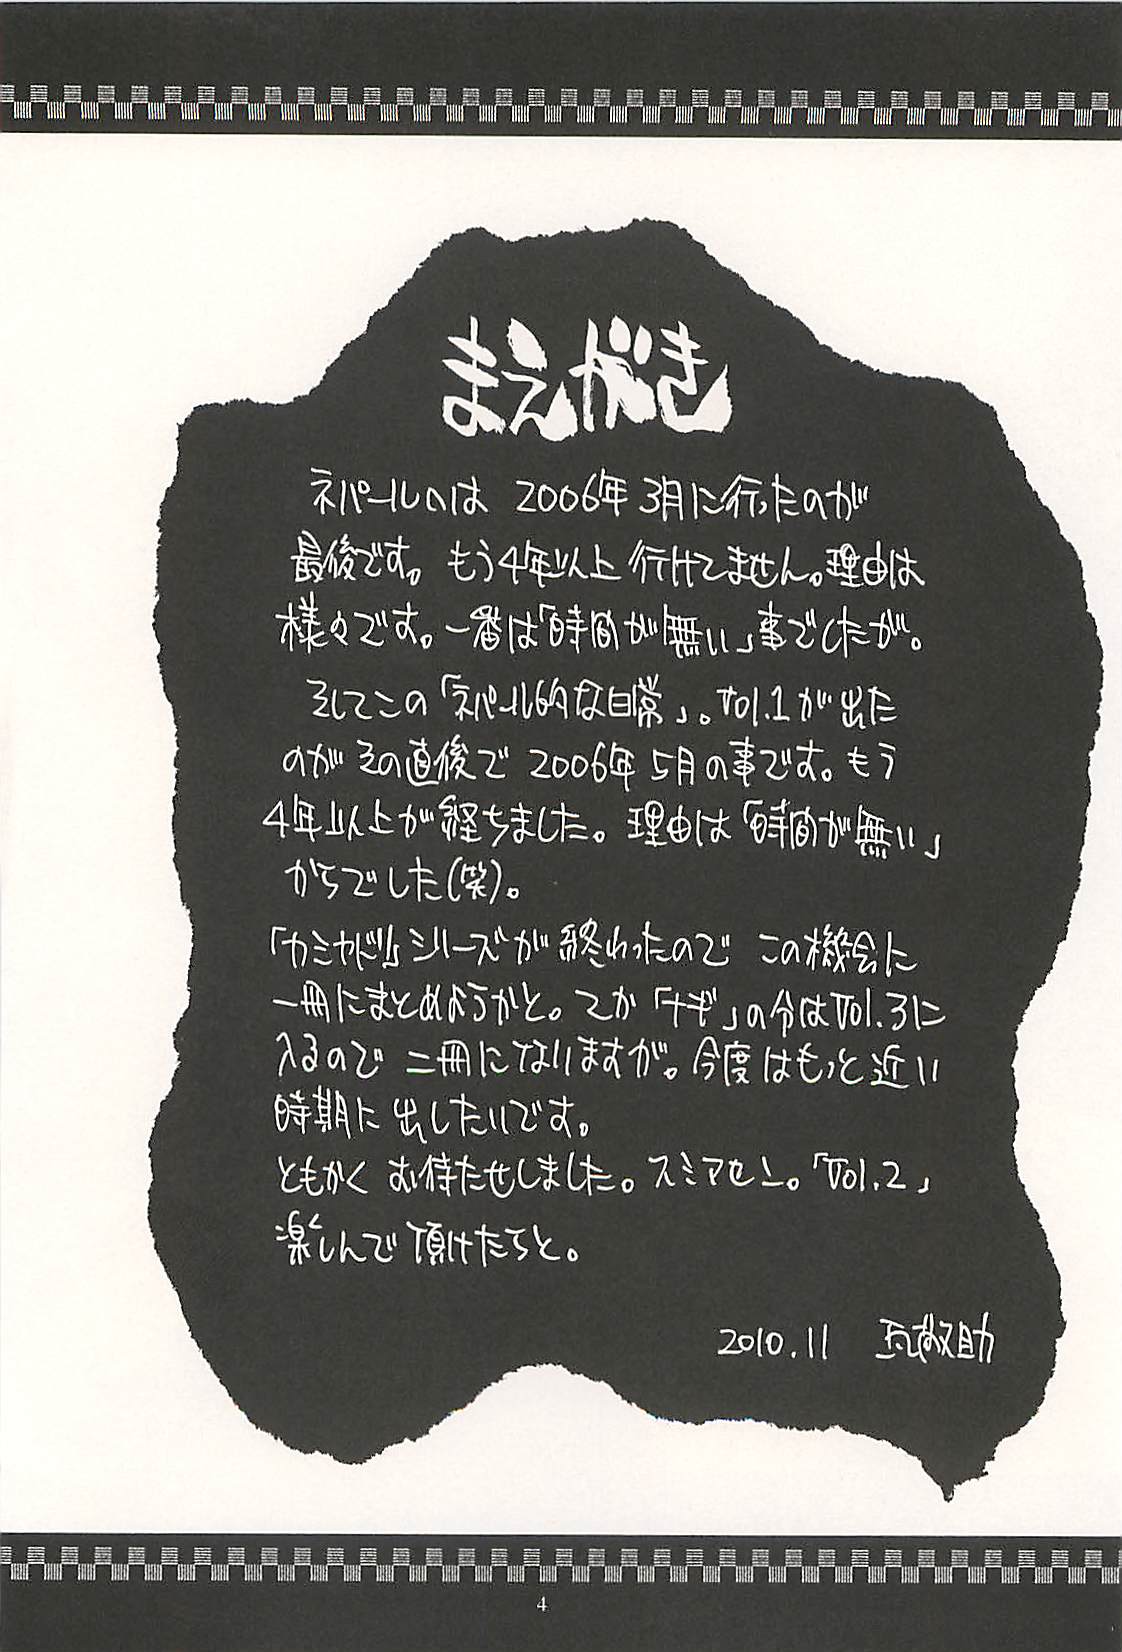 まえがき
ネパールへは 2006年 3月に行ったのが
最後です。もう4年以上 行けてません。理由は
様々です。一番は「時間が無い」事でしたが。
そしてこの「ネパール的な日常」。Vol.1が出た
のがその直後で 2006年 5月の事です。もう
4年以上が経ちました。理由は「時間が無い」
からでした(笑)。
「カミヤドリ」シリーズが終わったので この機会に
一冊にまとめようかと。てか「ナギ」の分はVol.3に
入るので 二冊になりますが。今度はもっと近い
時期に出したいです。
ともかく お待たせしました。スミマセン。「Vol.2」
楽しんで頂けたらと。
2010.11 瓦敬助
4